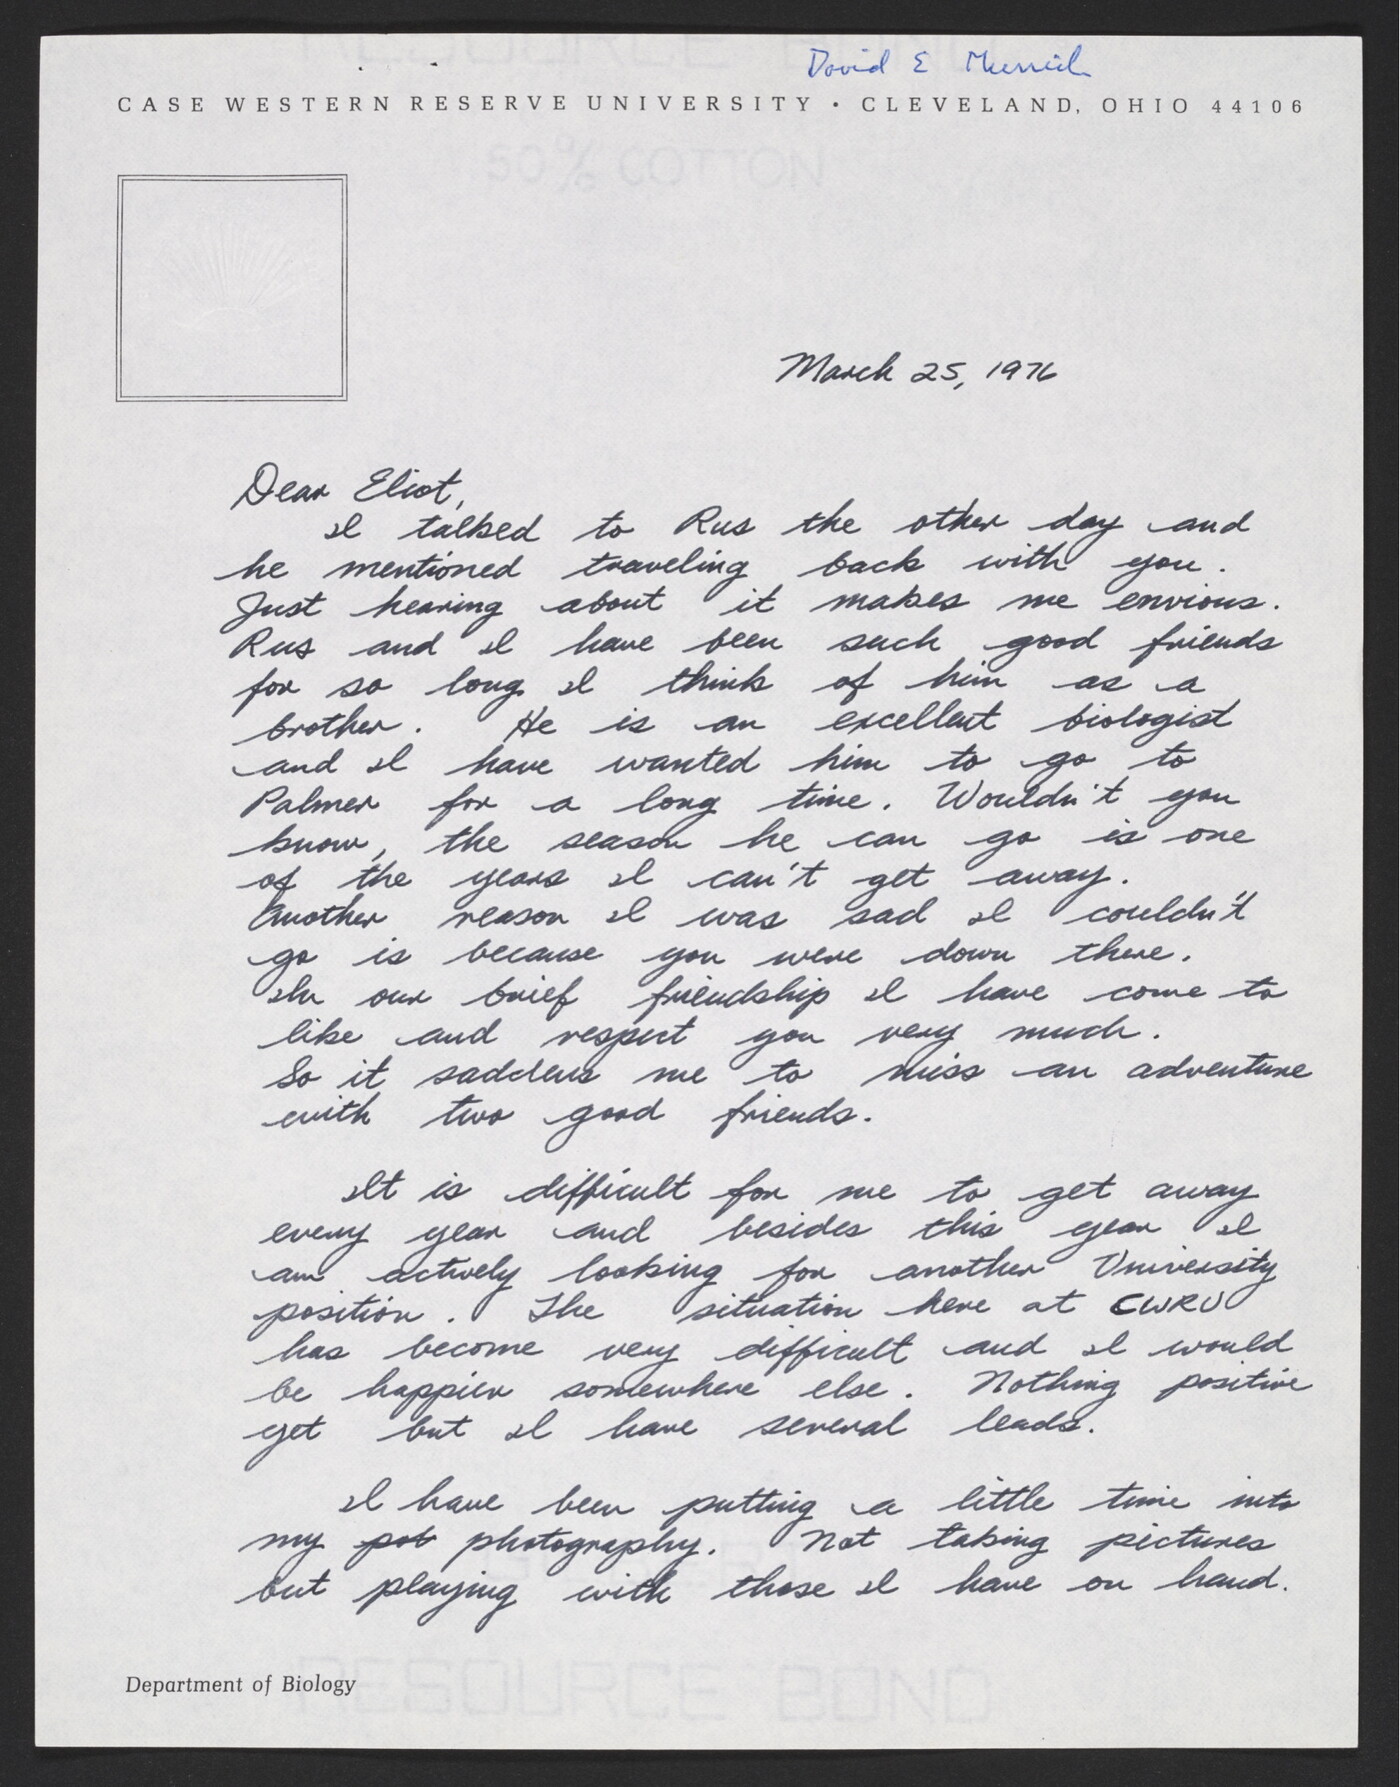 David E Murrish
CASE WESTERN RESERVE UNIVERSITY • CLEVELAND, OHIO 44106
50% COTTON
March 25, 1976
Dear Eliot,
I talked to Rus the other day and
he mentioned traveling back with you.
Just hearing about it makes me envious.
Rus and I have been such good friends
for so long I think of him as a
brother. He is an excellent biologist
and I have wanted him to go to
Palmer for a long time. Wouldn't you
know, the season he can go is one
of the years I can't get away.
Another reason I was sad I couldn't
go is because you were down there.
In our brief friendship I have come to
like and respect you very much.
So it saddens me to miss an adventure
with two good friends.
It is difficult for me to get away
every year and besides this year I
am actively looking for another University
position. The situation here at CWRU
has become very difficult and I would
be happier somewhere else. Nothing positive
yet but I have several leads.
I have been putting a little time into
my pot photography. Not taking pictures
but playing with those I have on hand.
Department of Biology
RESOURCE BOND